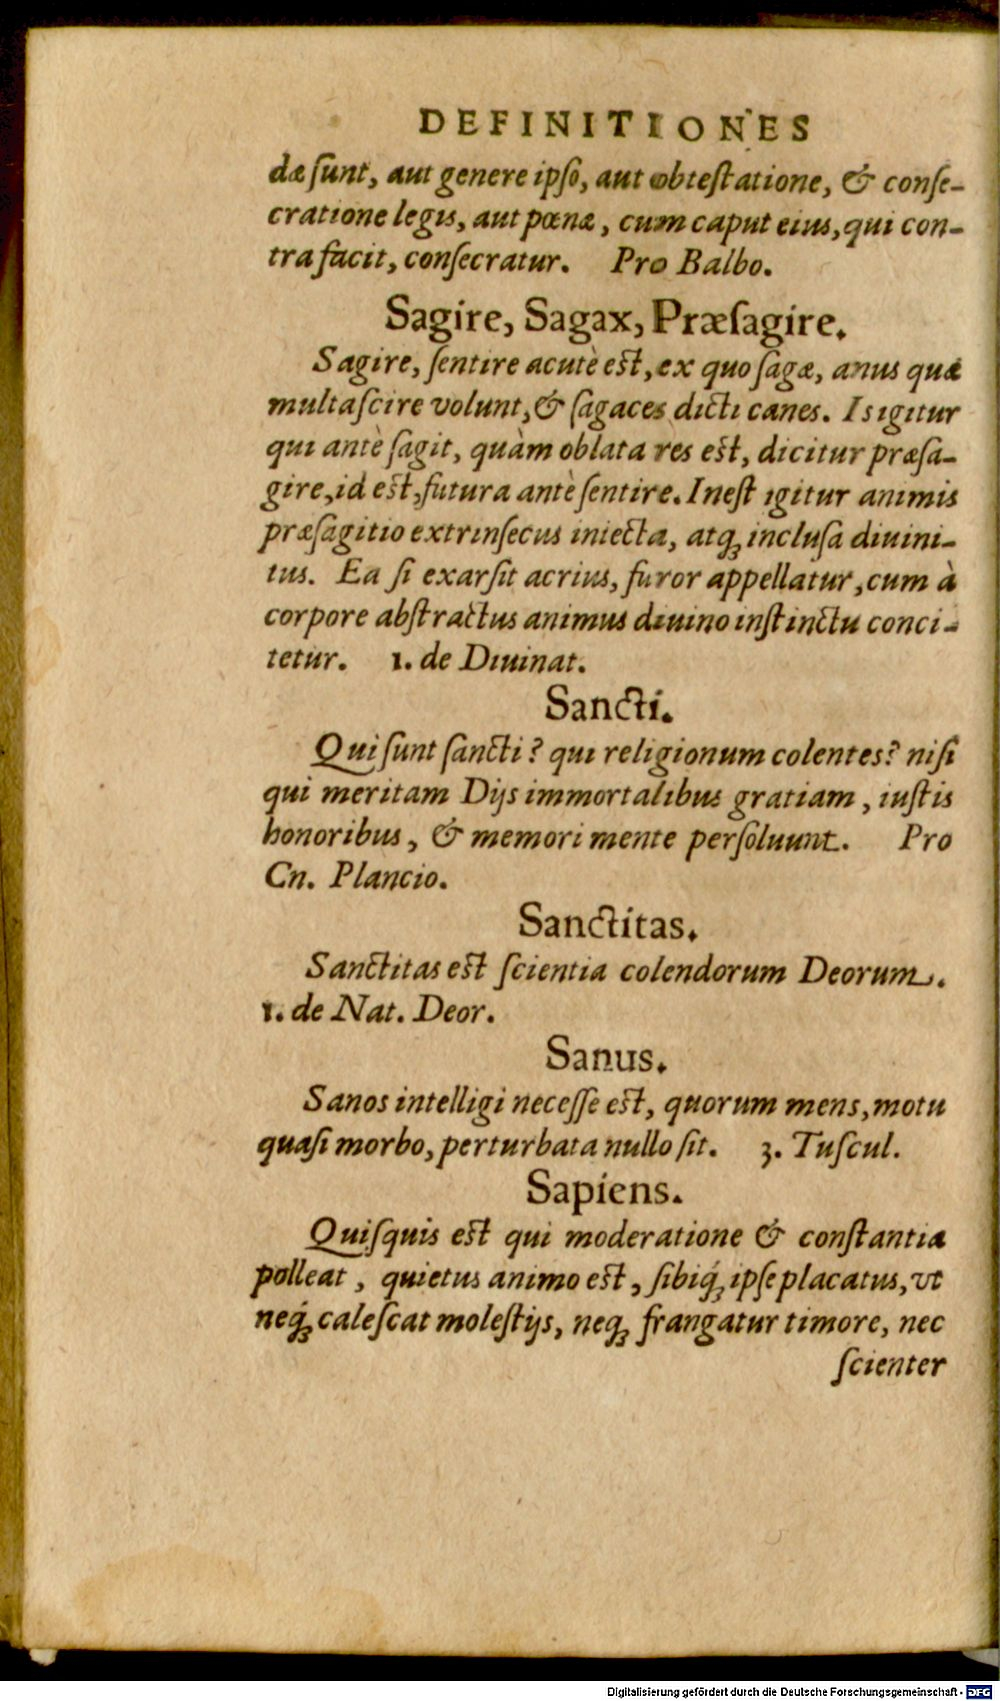 DEFINITIONES
dæ ſunt, aut genere ipſo, aut obteſtatione, & conſe-
cratione legis, aut pœnæ, cum caput eius, qui con-
tra facit, conſecratur. Pro Balbo.
Sagire, Sagax, Præſagire.
Sagire, ſentire acutè eſt, ex quo ſagæ, anus quæ
multa ſcire volunt, & ſagaces dicti canes. Is igitur
qui antè ſagit, quàm oblata res eſt, dicitur præſa-
gire, id eſt, futura antè ſentire. Ineſt igitur animis
præſagitio extrinſecus iniecta, atq; incluſa diuini-
tus. Ea ſi exarſit acrius, furor appellatur, cum à
corpore abſtractus animus diuino inſtinctu conci-
tetur. 1. de Diuinat.
Sancti.
Qui ſunt ſancti? qui religionum colentes? niſi
qui meritam Dijs immortalibus gratiam, iuſtis
honoribus, & memori mente perſoluunt. Pro
Cn. Plancio.
Sanctitas.
Sanctitas eſt ſcientia colendorum Deorum.
1. de Nat. Deor.
Sanus.
Sanos intelligi neceſſe eſt, quorum mens, motu
quaſi morbo, perturbata nullo ſit. 3. Tuſcul.
Sapiens.
Quiſquis eſt qui moderatione & conſtantia
polleat, quietus animo eſt, ſibiq́; ipſe placatus, vt
neq́; caleſcat moleſtijs, neq; frangatur timore, nec
ſcienter
Digitalisierung gefördert durch die Deutsche Forschungsgemeinschaft - DFG